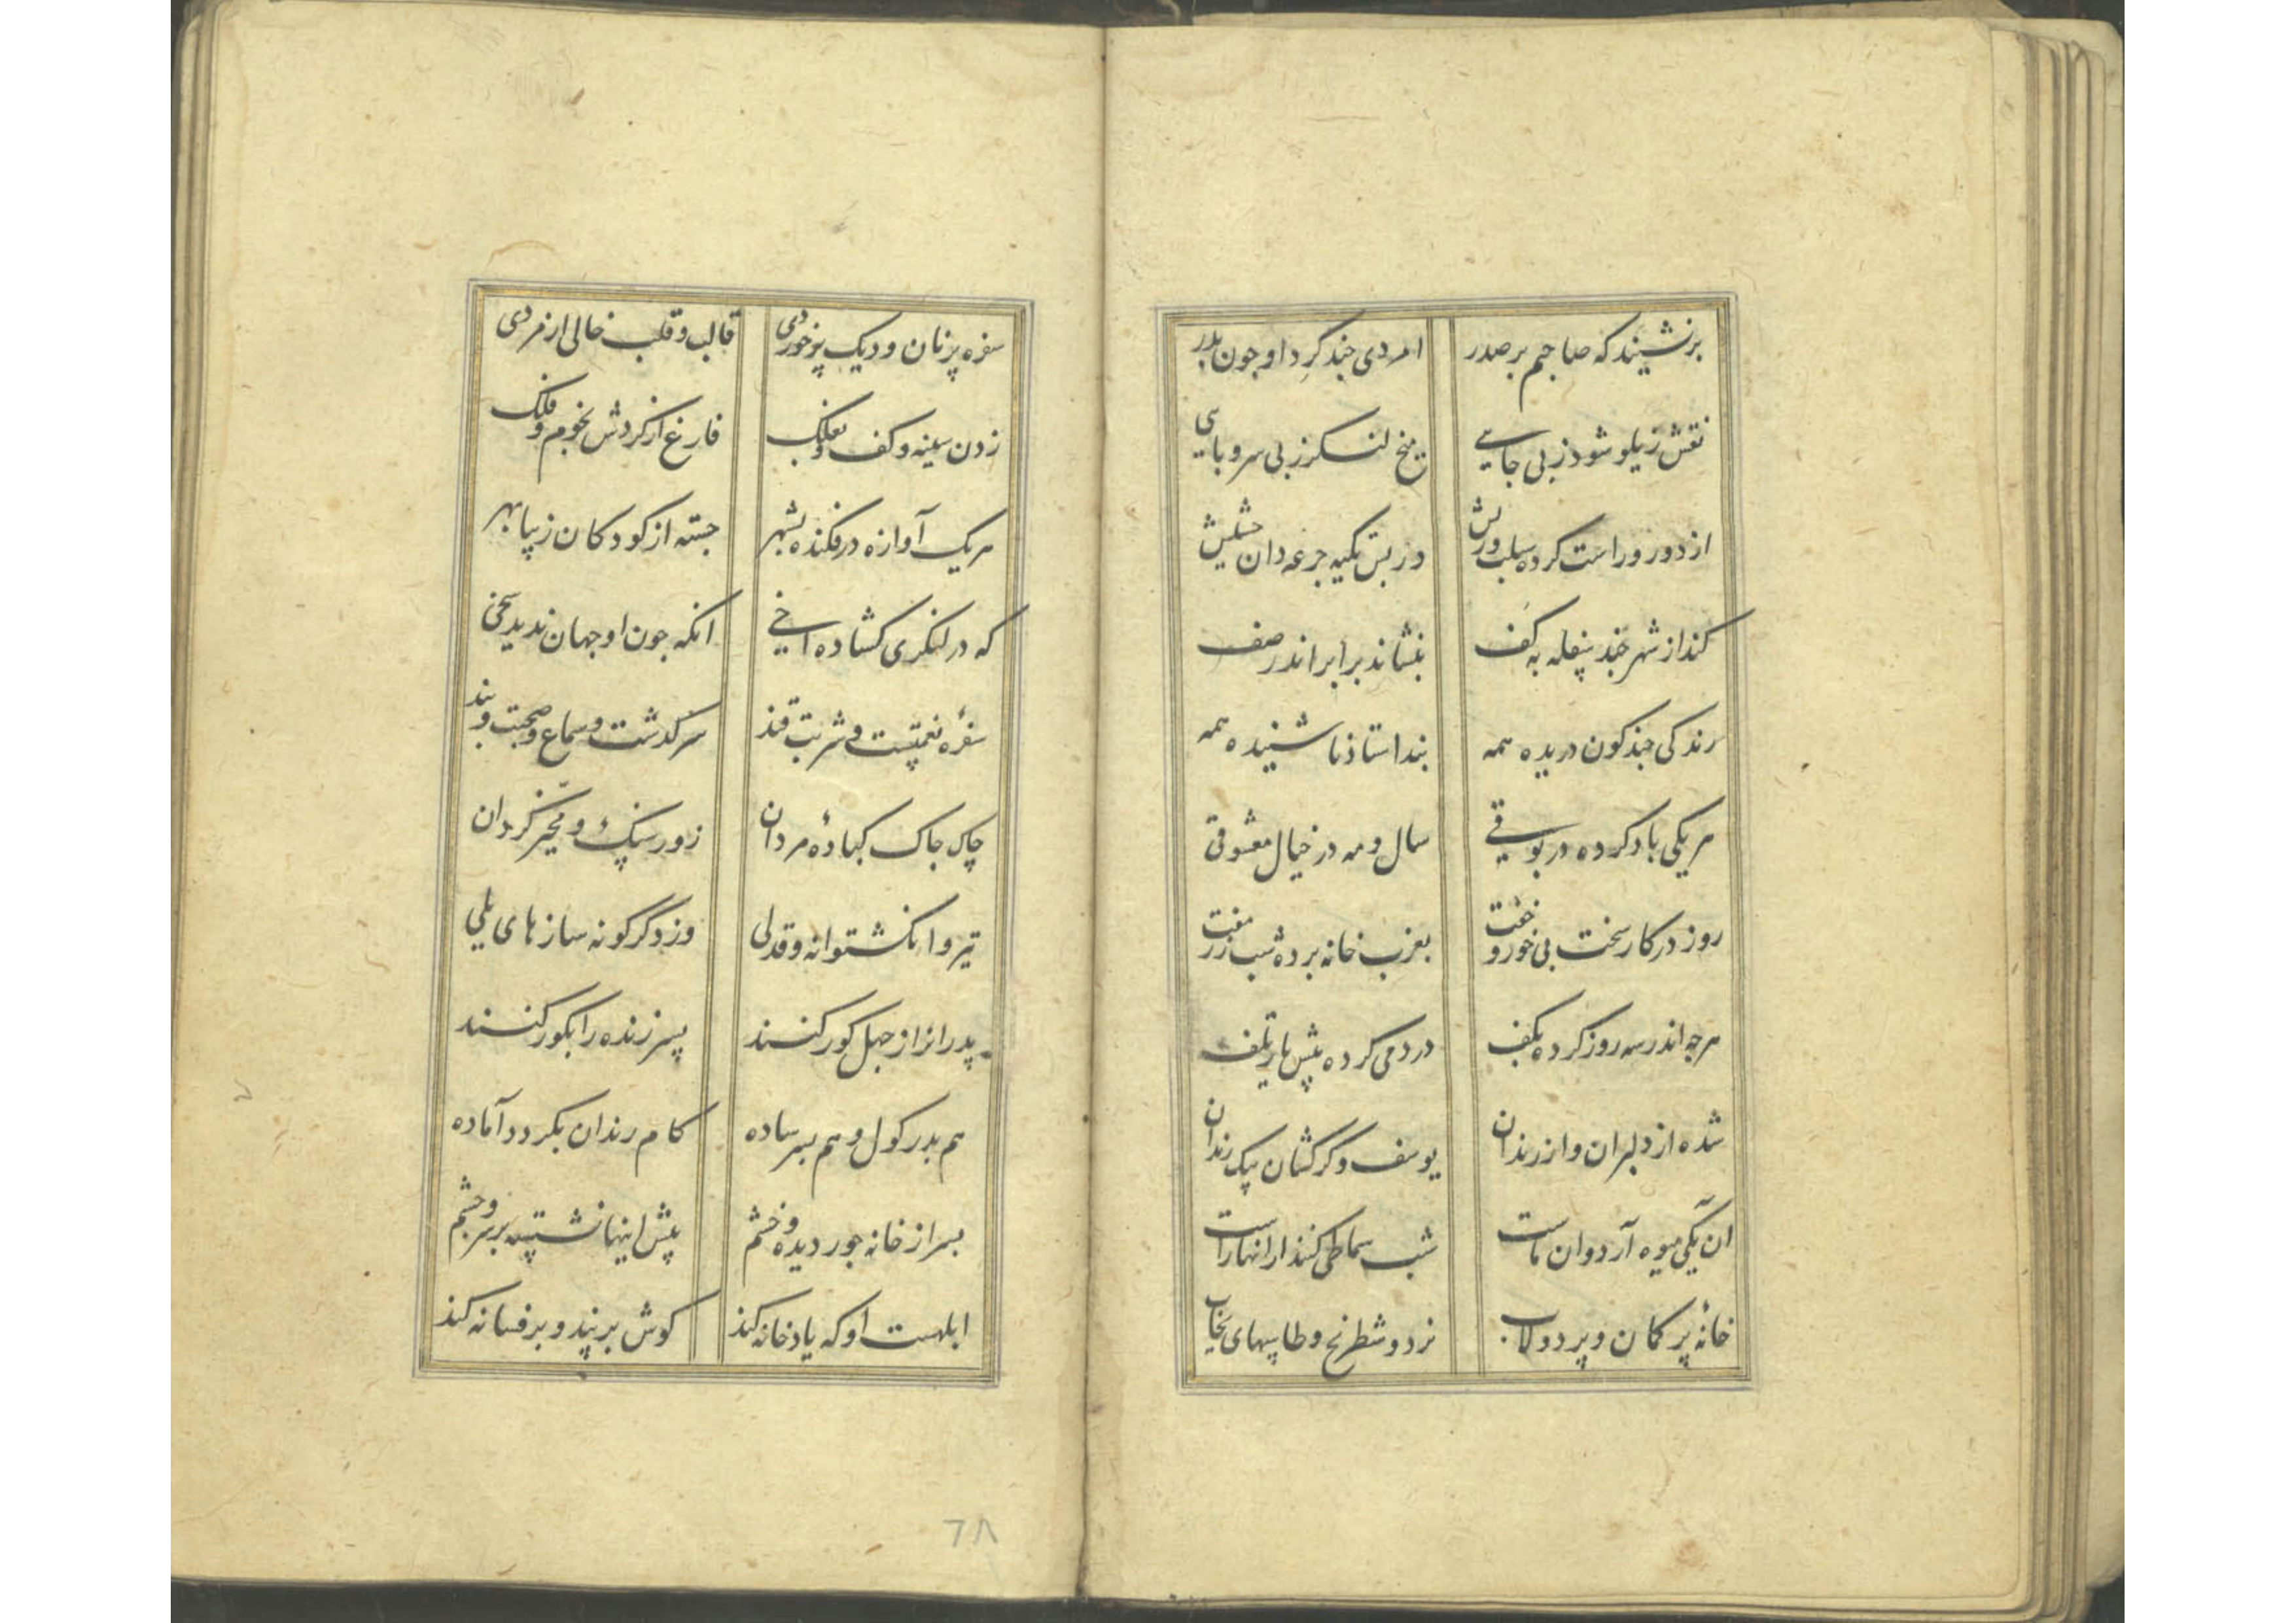 برنشیند که صاحبم بر صدر امردی چند گرد او چون بدر
نقش زیلو شود ز بی جایی میخ لنگر ز بی سر و پایی
از در و راست کرده سبلت و ریش در پس تکیه جرعه دان حشیش
کند از شهر چند سفله به کف بنشاند برابر اندر صف
رندکی چند کون دریده همه پند استاذ نا شنیده همه
هر یکی باد کرده در بوقی سال و مه در خیال معشوقی
روز در کار سخت بی خور و خفت بعزب خانه برده شب زر مفت
هرچه اندر سه روز کرده بکف در دمی کرده پیش یار تلف
شده از دلبران و از رندان یوسف و گرگشان بیک زندان
آن یکی میوه آرد و آن ماست شب سماطی کنند از آنها راست
خانهٔ پر کمان و پر دولاب نرد و شطرنج و طاسهای
سفره پر نان و دیک پر خوردی قالب و قلب خالی از مردی
زدن سینه و کف و فارغ از گردش نجوم و فلک
هر یک آوازه در فکنده بشهر جسته از کودکان زیبا بهر
که در لنگری گشاده اخی آنکه چون او جهان ندید سخی
سفره نعمتست و شربت قند سرگذشت و سماع و صحبت و پند
چاک چاک کبادهٔ مردان زور سنگ و گردان
تیر و انگشتوانه و قدلی وز دگرگونه سازهای یلی
پدرانرا ز جهل کور کنند پسر زنده را بگور کنند
هم پدر گول و هم پسر ساده کام رندان بگردد آماده
پسر از خانه جور دیده و خشم پیش اینها نشسته بر سر و چشم
ابلهست او که یاد خانه کند گوش بر پند و بر فسانه کند
٦٨